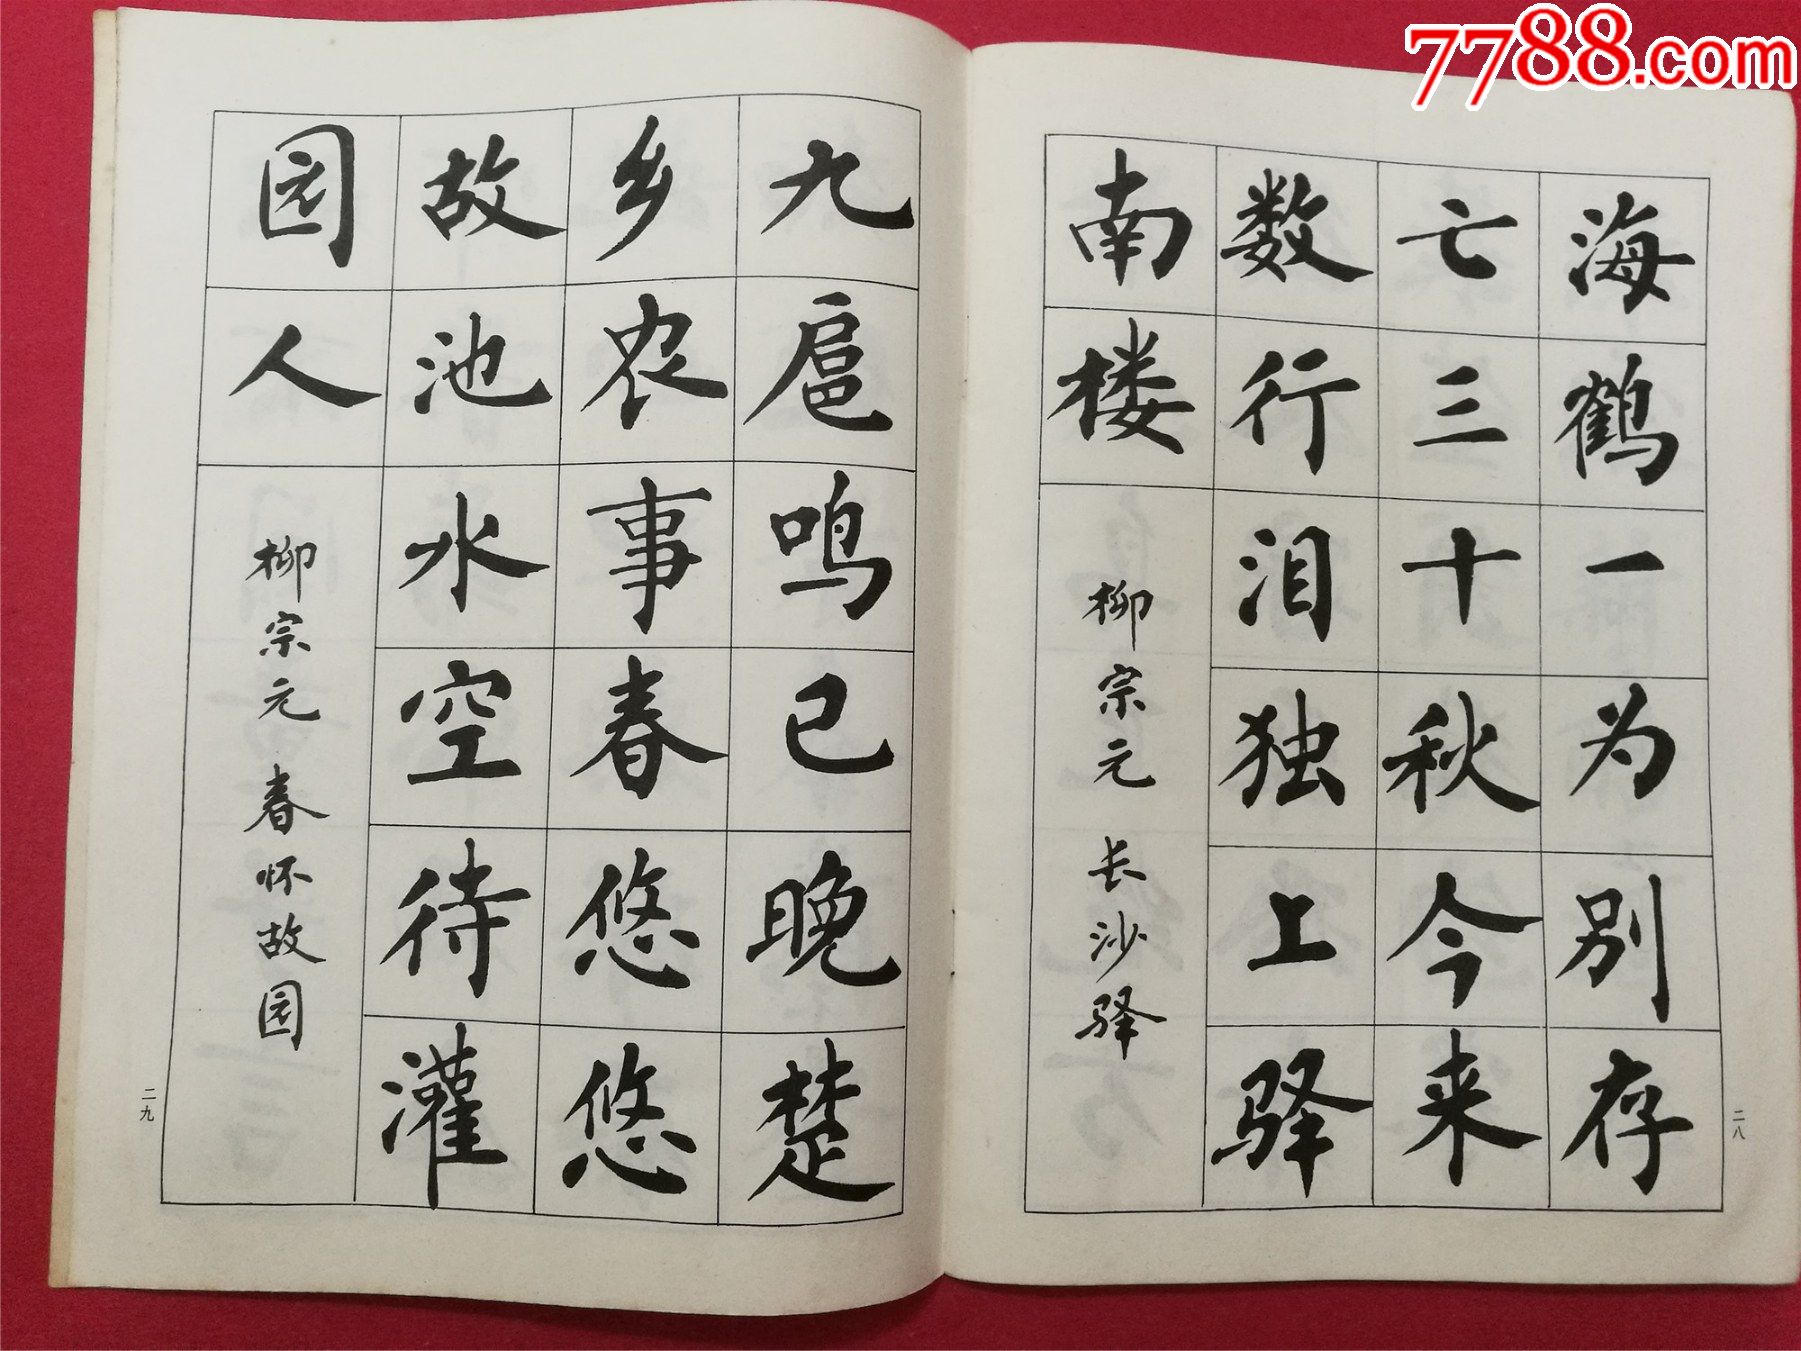 7788.com
海鹤一为别存
亡三十秋今来
数行泪独上驿
南楼
柳宗元 长沙驿
二八
九扈鸣已晚楚
乡农事春悠悠
故池水空待灌
园人
柳宗元 春怀故园
二九